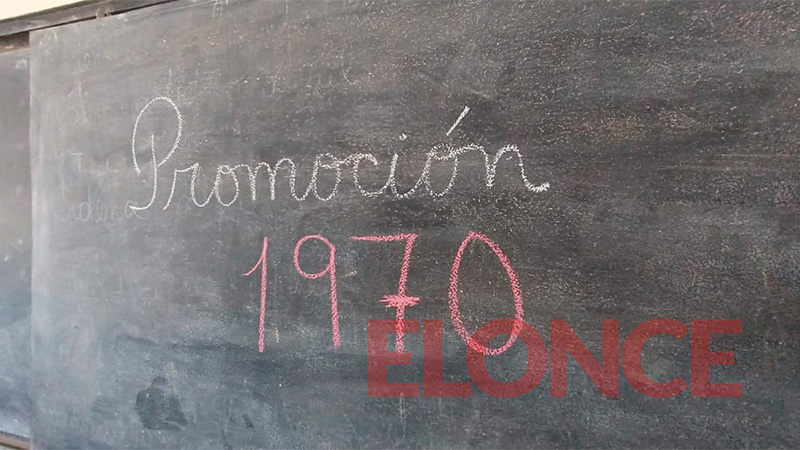 Promoción
1970
ELONCE